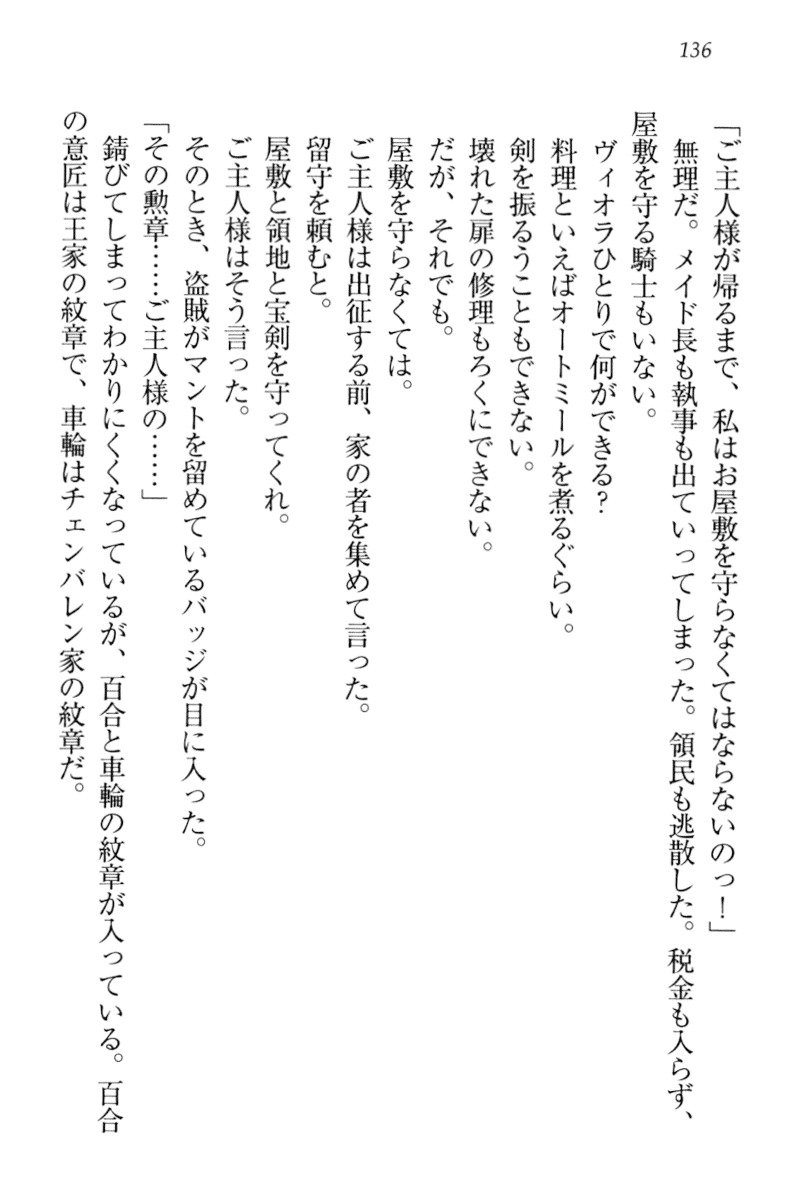 136
「ご主人様が帰るまで、私はお屋敷を守らなくてはならないのっ！」
無理だ。メイド長も執事も出ていってしまった。領民も逃散した。税金も入らず、
屋敷を守る騎士もいない。
ヴィオラひとりで何ができる？
料理といえばオートミールを煮るぐらい。
剣を振るうこともできない。
壊れた扉の修理もろくにできない。
だが、それでも。
屋敷を守らなくては。
ご主人様は出征する前、家の者を集めて言った。
留守を頼むと。
屋敷と領地と宝剣を守ってくれ。
ご主人様はそう言った。
そのとき、盗賊がマントを留めているバッジが目に入った。
「その勲章……ご主人様の……」
錆びてしまってわかりにくくなっているが、百合と車輪の紋章が入っている。百合
の意匠は王家の紋章で、車輪はチェンバレン家の紋章だ。